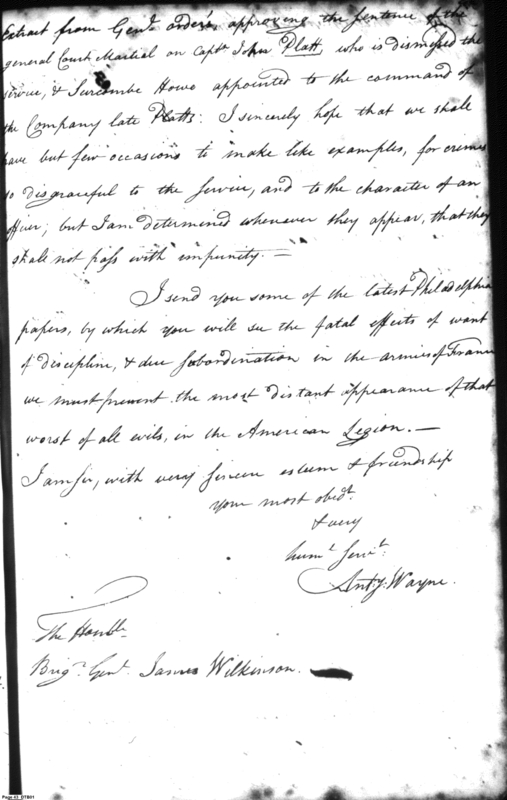 Extract from Genl. orders approving the sentence of the
general Court Martial on Capt. John Platt, who is dismissed the
service, & Surcombe Howe appointed to the command of
the Company late Platts: I sincerely hope that we shall
have but few occasions to make like examples, for crimes
so disgraceful to the service, and to the character of an
officer; but I am determined whenever they appear, that they
shall not pass with impunity. —
I send you some of the latest Philadelphia
papers, by which you will see the fatal effects of want
of discipline, & due subordination in the armies of France
we must prevent the most distant appearance of that
worst of all evils, in the American Legion. —
I am sir, with very sincere esteem & friendship
your most obedt.
& very
huml. servt.
Anty. Wayne.
The Honble.
Brigr. Genl. James Wilkinson.
Page 43 DTB01